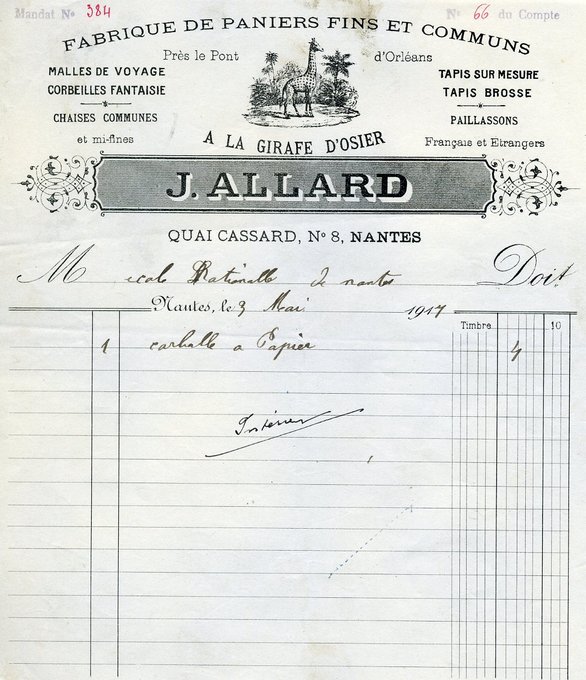 Mandat No 384
No 66 du Compte
FABRIQUE DE PANIERS FINS ET COMMUNS
Près le Pont d'Orléans
MALLES DE VOYAGE
CORBEILLES FANTAISIE
CHAISES COMMUNES
et mi-fines
TAPIS SUR MESURE
TAPIS BROSSE
PAILLASSONS
Français et Etrangers
A LA GIRAFE D'OSIER
J. ALLARD
QUAI CASSARD, No 8, NANTES
M ecole Nationalle de nantes Doit
Nantes, le 3 Mai 1917
Timbre 10
1 corbelle a Papier 4